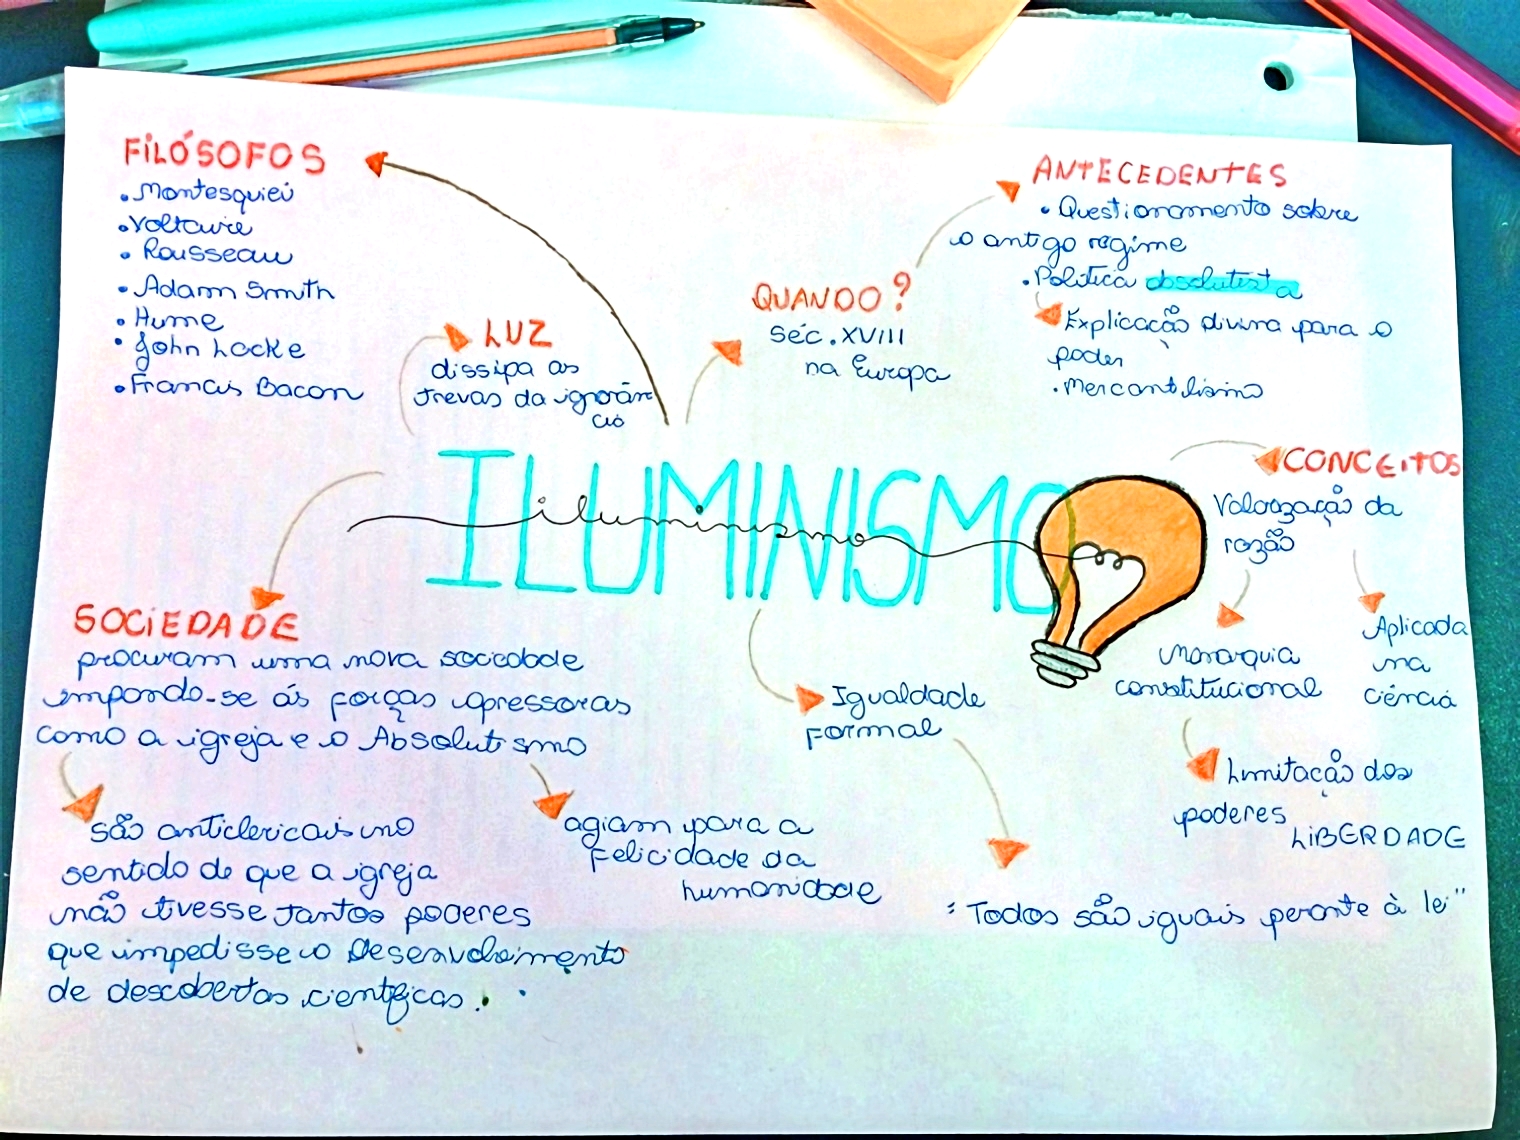 FILÓSOFOS
• Montesquieu
• Voltaire
• Rousseau
• Adam Smith
• Hume
• John Locke
• Francis Bacon
LUZ
dissipa as
trevas da ignorân
cia
QUANDO?
Séc. XVIII
na Europa
ANTECEDENTES
• Questionamento sobre
o antigo regime
• Política absolutista
Explicação divina para o
poder
• Mercantilismo
ILUMINISMO
iluminismo
CONCEITOS
Valorização da
razão
Monarquia
constitucional
Aplicada
na
ciência
Limitação dos
poderes
LIBERDADE
SOCIEDADE
procuram uma nova sociedade
impondo-se ás forças opressoras
como a igreja e o Absolutismo
são anticlericais no
sentido de que a igreja
não tivesse tantos poderes
que impedisse o desenvolvimento
de descobertas científicas.
agiam para a
felicidade da
humanidade
Igualdade
formal
"Todos são iguais perante à lei"